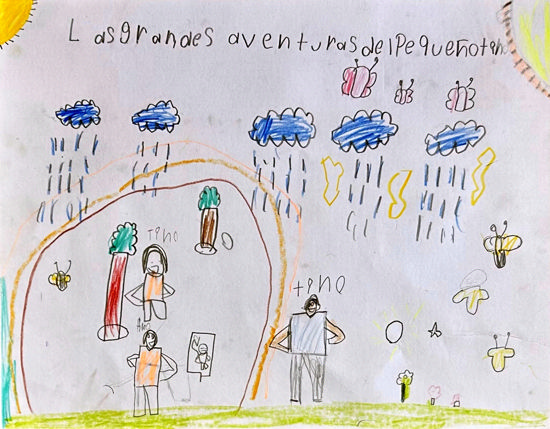 Las grandes aventuras del Pequeño tino
Tino
tino